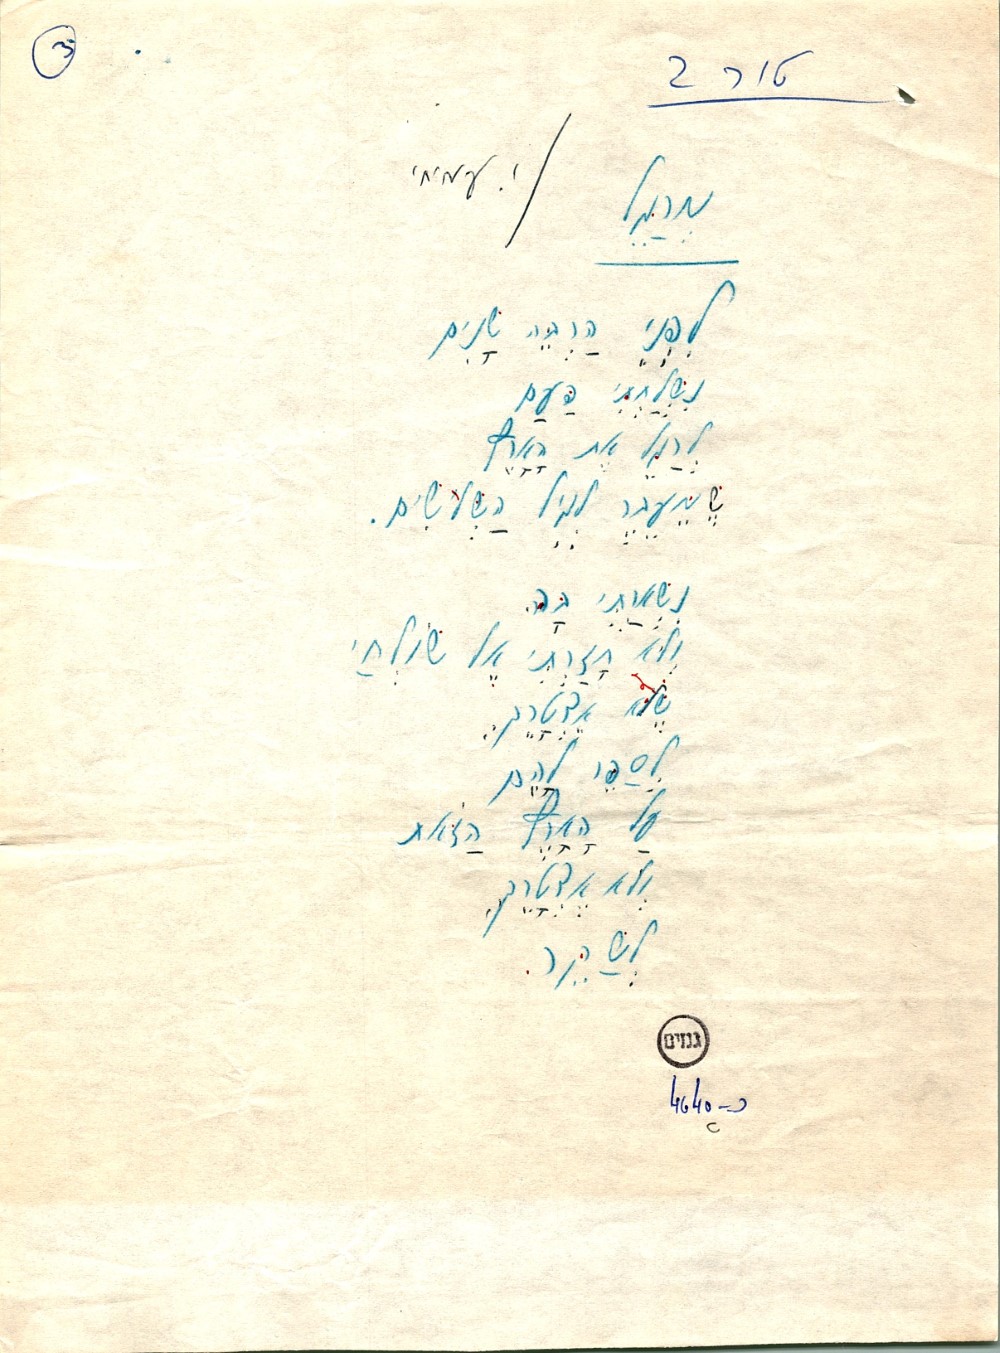 טור 2
מְרַגֵּל / י. עמיחי
לִפְנֵי הַרְבֵּה שָׁנִים
נִשְׁלַחְתִּי פַּעַם
לְרַגֵּל אֶת הָאָרֶץ
שֶׁמֵּעֵבֶר לְגִיל הַשְּׁלֹשִׁים.
נִשְׁאַרְתִּי בָּהּ
וְלֹא חָזַרְתִּי אֶל שׁוֹלְחַי
שֶׁלֹּא אֶצְטָרֵךְ
לְסַפֵּר לָהֶם
עַל הָאָרֶץ הַזֹּאת
וְלֹא אֶצְטָרֵךְ
לְשַׁקֵּר.
גנזים
כ–4640